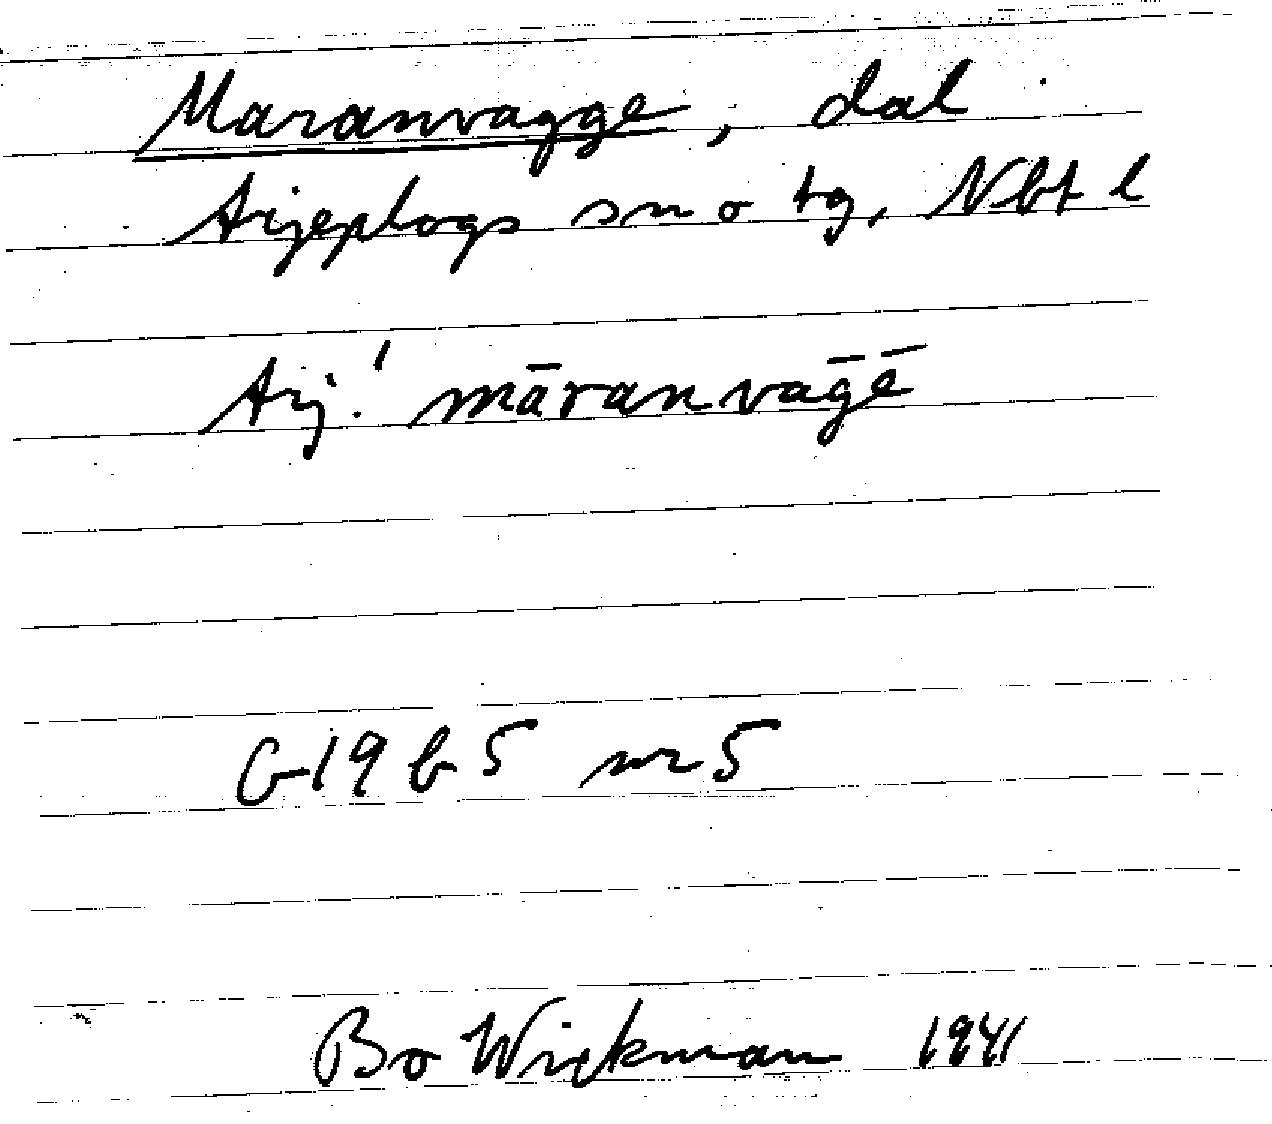 Maranvagge, dal
Arjeplogs sn o tg, Nbt l
Arj. ' māranvāḡē
G19 b 5 nr 5
Bo Wickman 1941